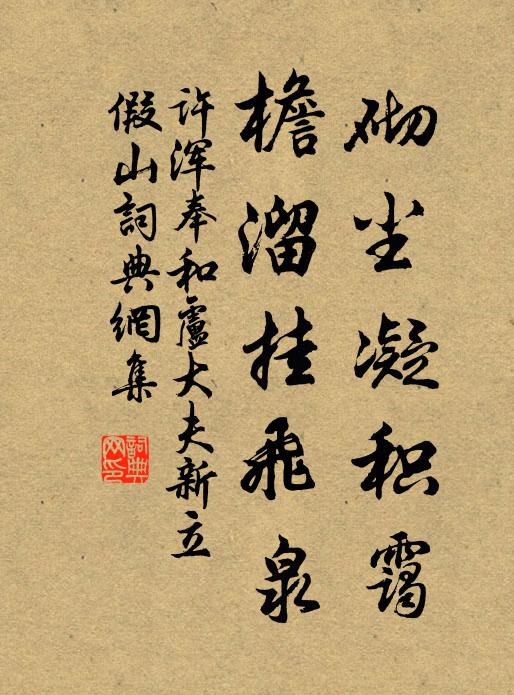 砌尘凝积霭
檐溜挂飞泉
许浑奉和卢大夫新立
假山詞典網集
詞典网印